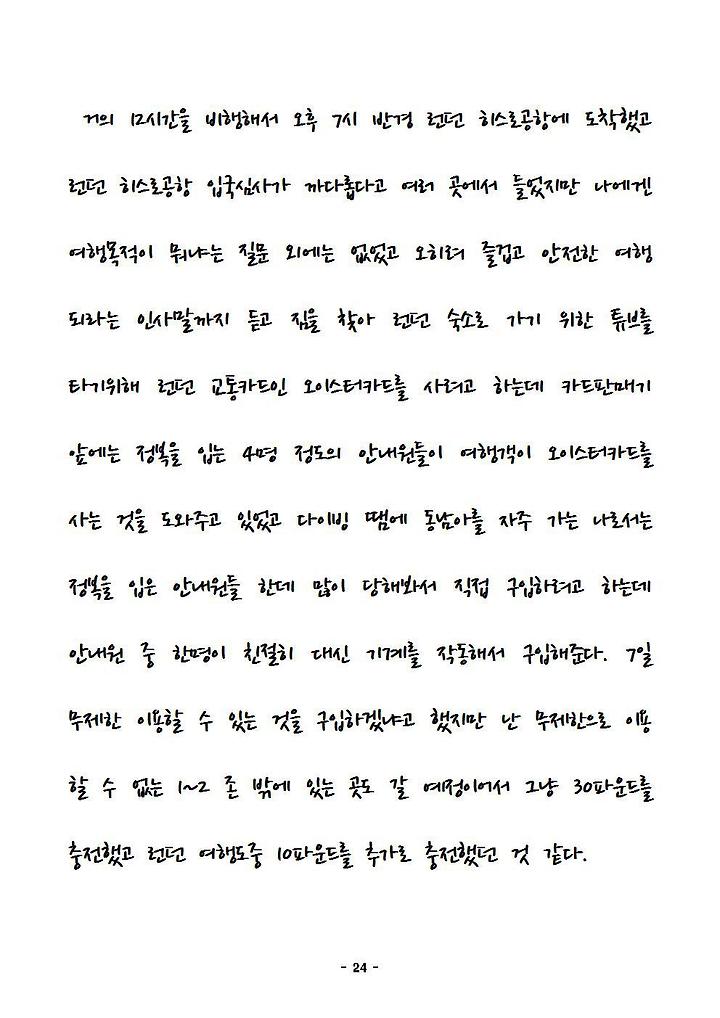 거의 12시간을 비행해서 오후 7시 반경 런던 히스로공항에 도착했고
런던 히스로공항 입국심사가 까다롭다고 여러 곳에서 들었지만 나에겐
여행목적이 뭐냐는 질문 외에는 없었고 오히려 즐겁고 안전한 여행
되라는 인사말까지 듣고 짐을 찾아 런던 숙소로 가기 위한 튜브를
타기위해 런던 교통카드인 오이스터카드를 사려고 하는데 카드판매기
앞에는 정복을 입는 4명 정도의 안내원들이 여행객이 오이스터카드를
사는 것을 도와주고 있었고 다이빙 땜에 동남아를 자주 가는 나로서는
정복을 입은 안내원들 한데 많이 당해봐서 직접 구입하려고 하는데
안내원 중 한명이 친절히 대신 기계를 작동해서 구입해준다. 7일
무제한 이용할 수 있는 것을 구입하겠냐고 했지만 난 무제한으로 이용
할 수 없는 1~2 존 밖에 있는 곳도 갈 예정이어서 그냥 30파운드를
충전했고 런던 여행도중 10파운드를 추가로 충전했던 것 같다.
- 24 -